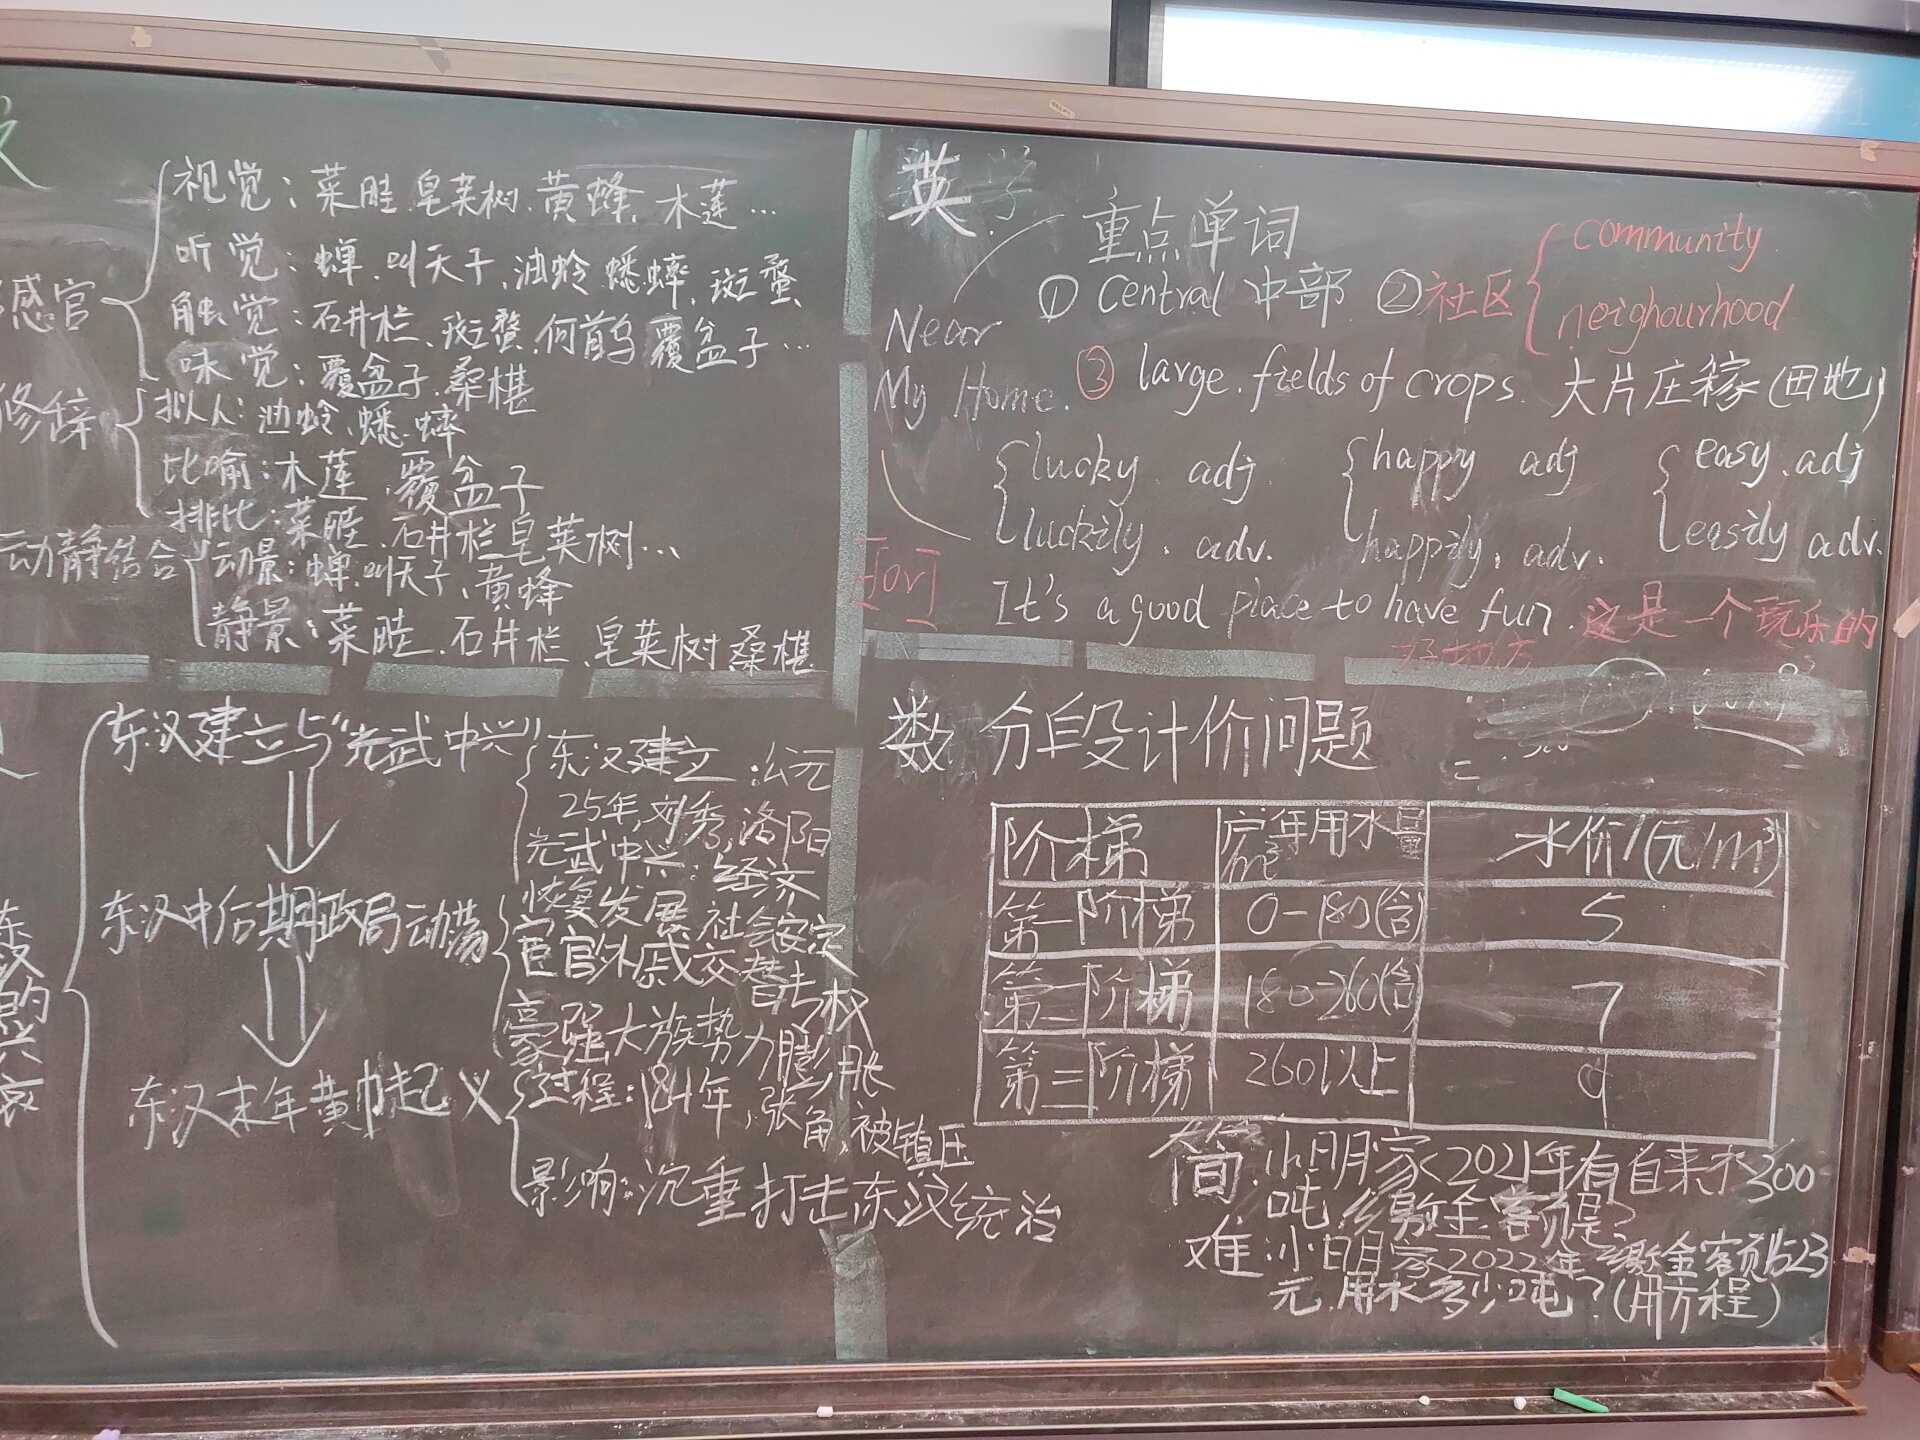 视觉：菜畦.皂荚树.黄蜂.木莲…
听觉：蝉.叫天子,油蛉.蟋蟀.斑蝥
感官
触觉：石井栏、斑蝥.何首乌 覆盆子…
味觉：覆盆子.桑椹
修辞
拟人：油蛉、蟋蟀
比喻：木莲.覆盆子
排比：菜畦.石井栏 皂荚树…
动静结合
动景：蝉.叫天子、黄蜂
静景：菜畦.石井栏、皂荚树 桑椹
英
重点单词
① Central 中部 ②社区
community.
neighourhood
Near
My Home.
③ large fields of crops. 大片庄稼(田地)
lucky. adj.
happy adj
easy. adj
luckily. adv.
happily. adv.
easily adv.
It's a good place to have fun. 这是一个玩乐的
好地方
东汉建立与“光武中兴”
东汉建立：公元
25年,刘秀,洛阳
光武中兴：经济
恢复发展 社会安定
东汉中后期政局动荡
宦官外戚交替专权
豪强大族势力膨胀
东汉末年黄巾起义
过程：184年,张角,被镇压
影响：沉重打击东汉统治
东汉的兴衰
数 分段计价问题
阶梯 户年用水量 m³ 水价/(元/m³)
第一阶梯 0-180(含) 5
第二阶梯 180-260(含) 7
第三阶梯 260以上 9
简：小明家2021年有自来水300
吨,缴金额是?
难：小明家2022年缴金额为1523
元.用水多少吨?(用方程)